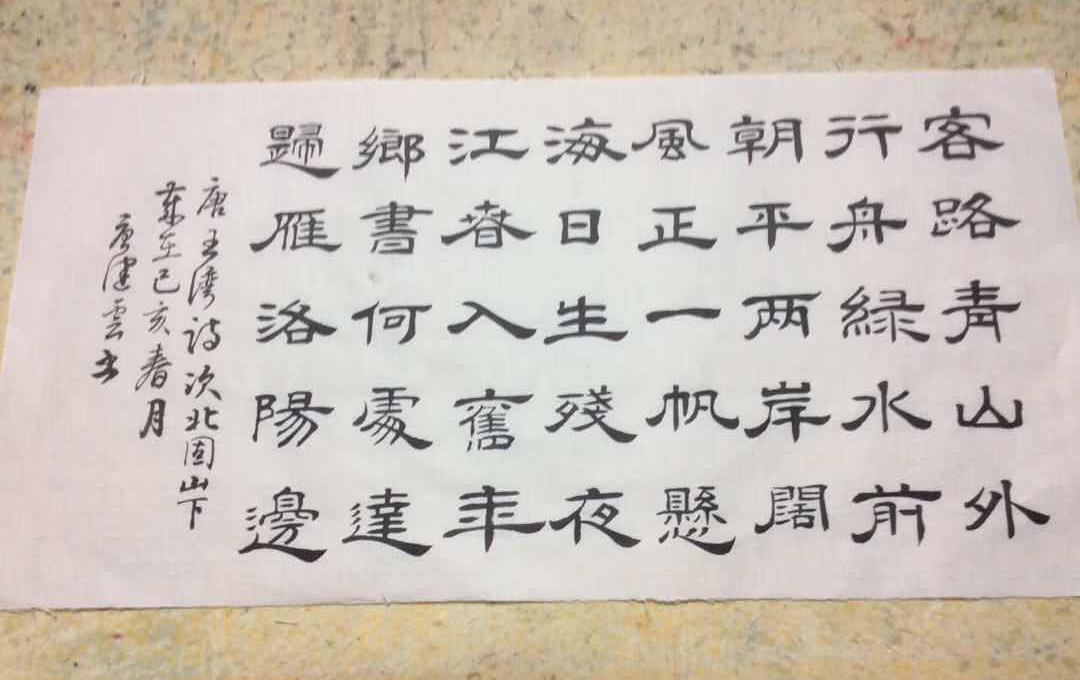 客路青山外
行舟緑水前
朝平两岸闊
風正一帆懸
海日生殘夜
江春入舊年
鄉書何處達
歸雁洛陽邊
唐王湾诗次北固山下
己亥春月
唐建雲书